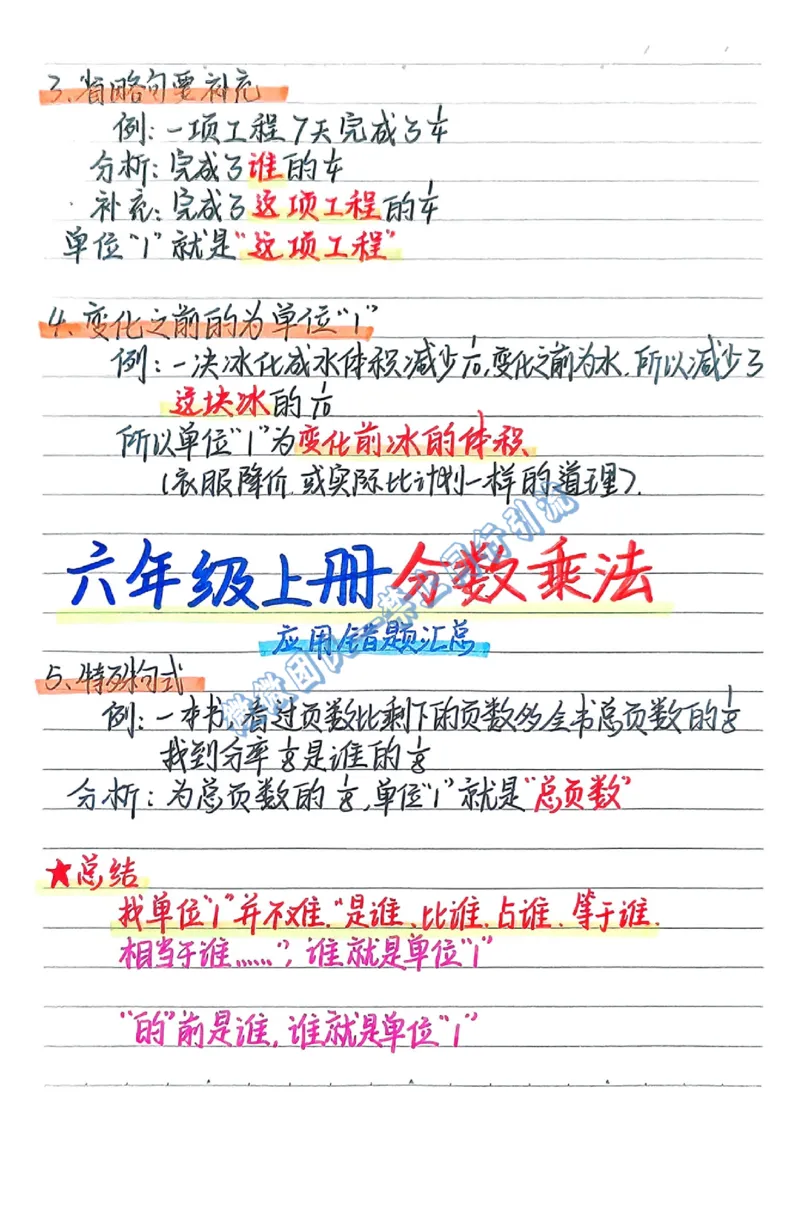 3、省略句要补充
例:一项工程7天完成了1/4
分析:完成了谁的1/4
补充:完成了这项工程的1/4
单位“1”就是“这项工程”
4、变化之前的为单位“1”
例:一决冰化成水体积减少1/10,变化之前为水.所以减少了
这块冰的1/10
所以单位“1”为变化前冰的体积
(衣服降价.或实际比计划一样的道理).
六年级上册分数乘法
应用错题汇总
5、特殊句式
例:一本书,看过页数比剩下的页数多全书总页数的1/8
找到分率1/8是谁的1/8
分析:为总页数的1/8,单位“1”就是“总页数”
★总结
找单位“1”并不难.“是谁、比谁、占谁、等于谁.
相当于谁……”,谁就是单位“1”
“的”前是谁,谁就是单位“1”